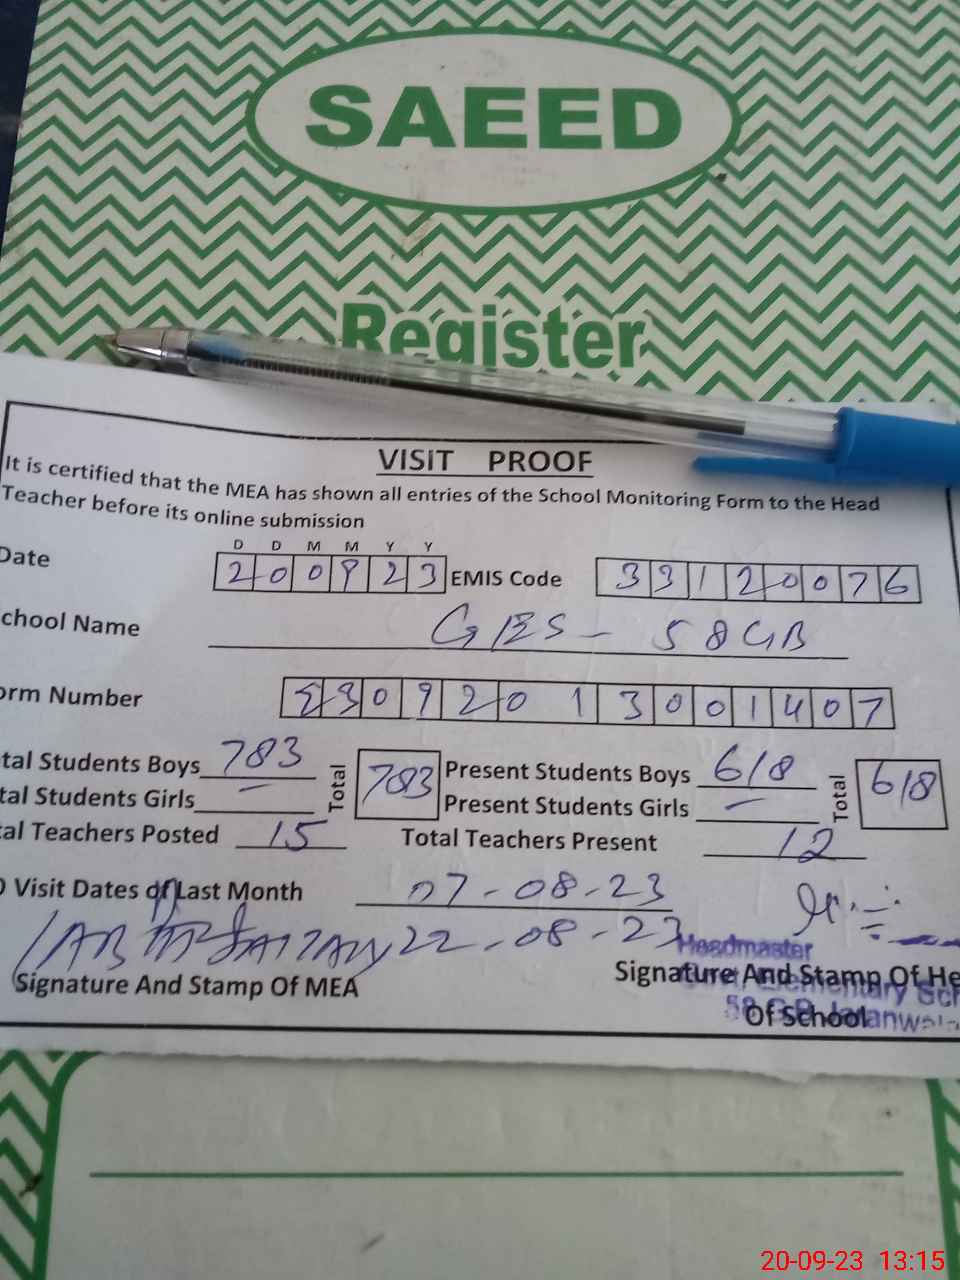 SAEED
Register
VISIT PROOF
It is certified that the MEA has shown all entries of the School Monitoring Form to the Head
Teacher before its online submission
D D M M Y Y
Date 2 0 0 9 2 3 EMIS Code 3 3 1 2 0 0 7 6
chool Name GES - 58 GB
orm Number 2 3 0 9 2 0 1 3 0 0 1 4 0 7
tal Students Boys 783 Total 783 Present Students Boys 618 Total 618
tal Students Girls – Present Students Girls –
al Teachers Posted 15 Total Teachers Present 12
Visit Dates of Last Month 07-08-23
22-08-23
Headmaster
Signature And Stamp Of MEA Signature And Stamp Of He
Elementary Sch
Of School
58 G.B
20-09-23 13:15